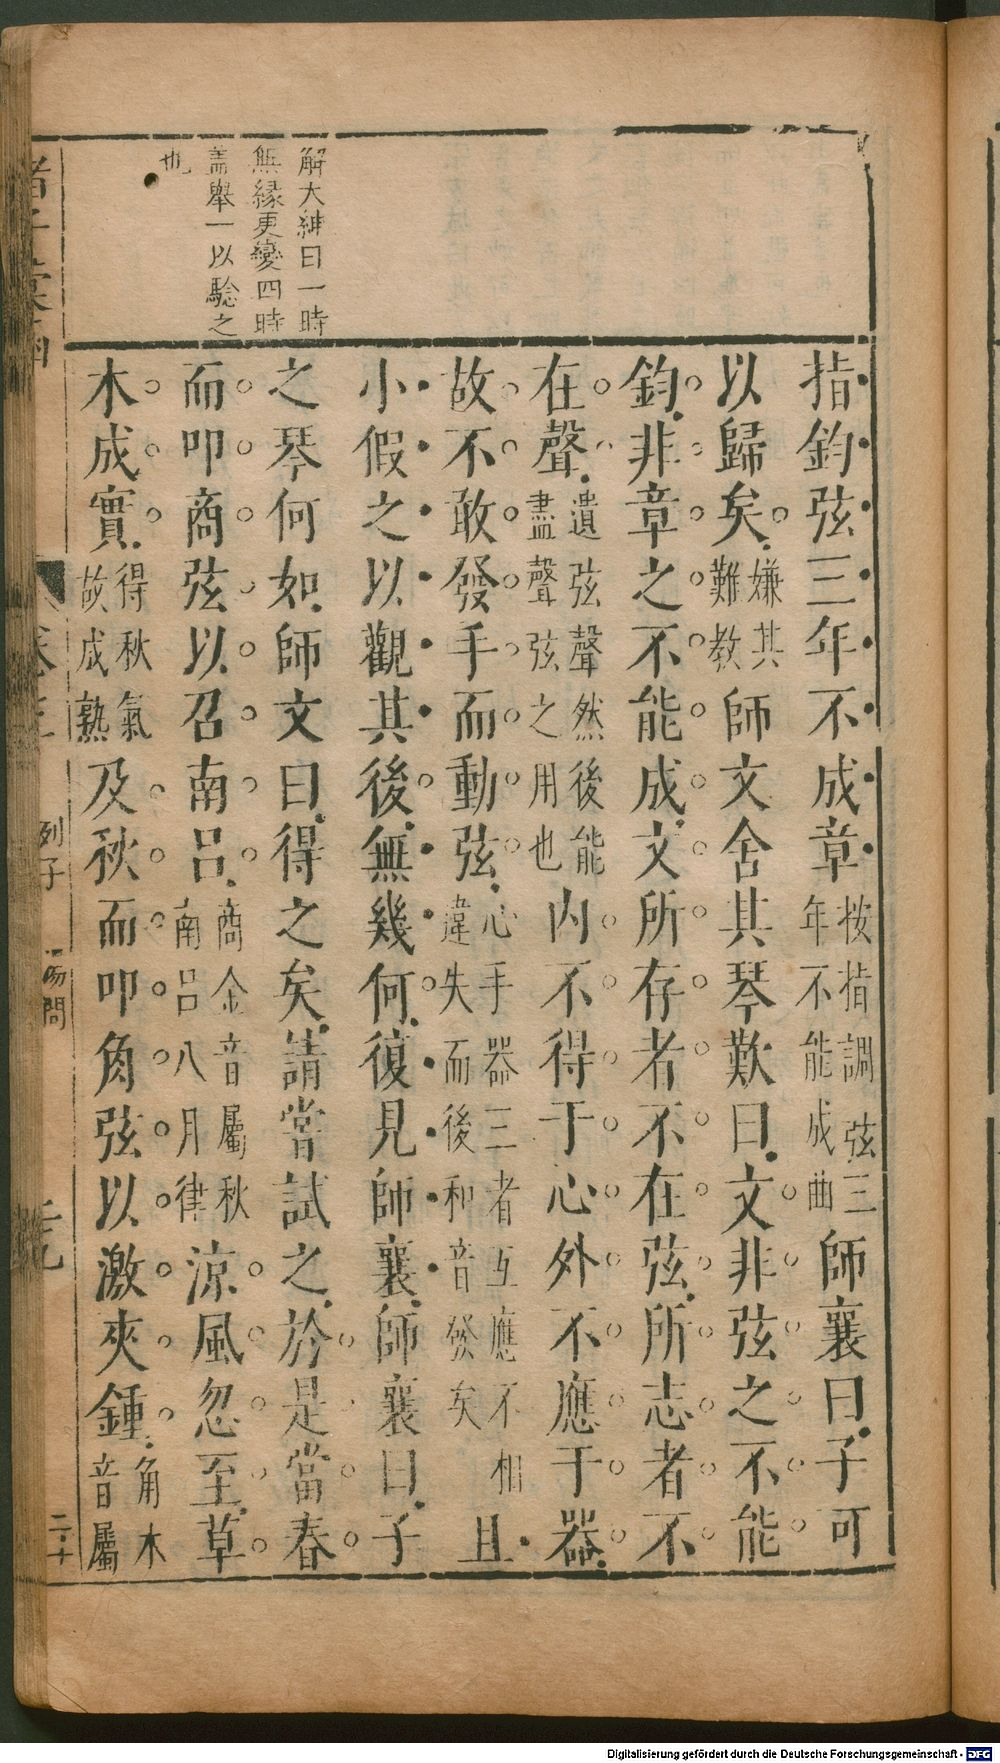 解大紳曰一時
無緣更變四時
蓋舉一以驗之
也
指鈞弦三年不成章按指調弦三年不能成曲師襄曰子可
以歸矣嫌其難教師文舍其琴歎曰文非弦之不能
鈞非章之不能成文所存者不在弦所志者不
在聲遺弦聲然後能盡聲弦之用也內不得于心外不應于器
故不敢發手而動弦心手器三者互應不相違失而後和音發矣且
小假之以觀其後無幾何復見師襄師襄曰子
之琴何如師文曰得之矣請嘗試之於是當春
而叩商弦以召南呂商金音屬秋南呂八月律涼風忽至草
木成實得秋氣故成熟及秋而叩角弦以激夾鍾角木音屬
列子
湯問
Digitalisierung gefördert durch die Deutsche Forschungsgemeinschaft - DFG